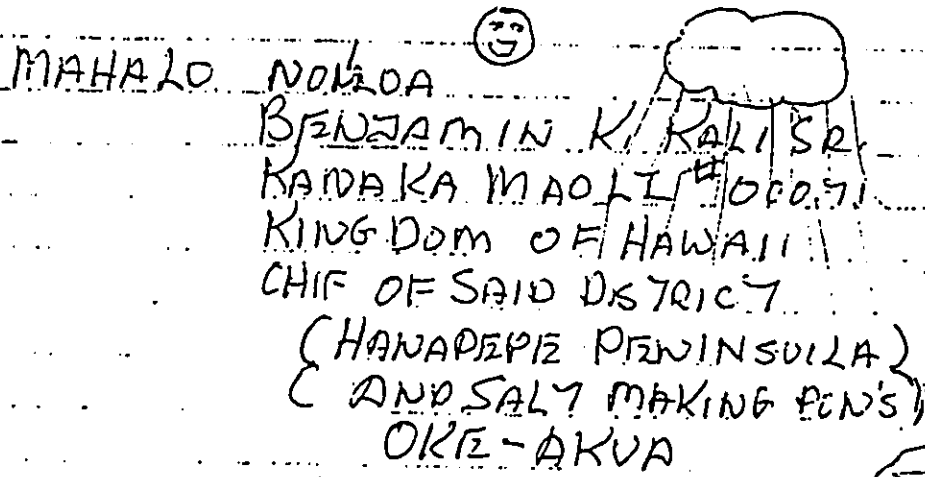 MAHALO NOULOA
BENJAMIN K. KALI SR.
KANAKA MAOLI #
KINGDOM OF HAWAII
CHIF OF SAID DISTRICT
(HANAPEPE PENINSUILA)
( AND SALT MAKING PEN'S)
OKE-AKUA